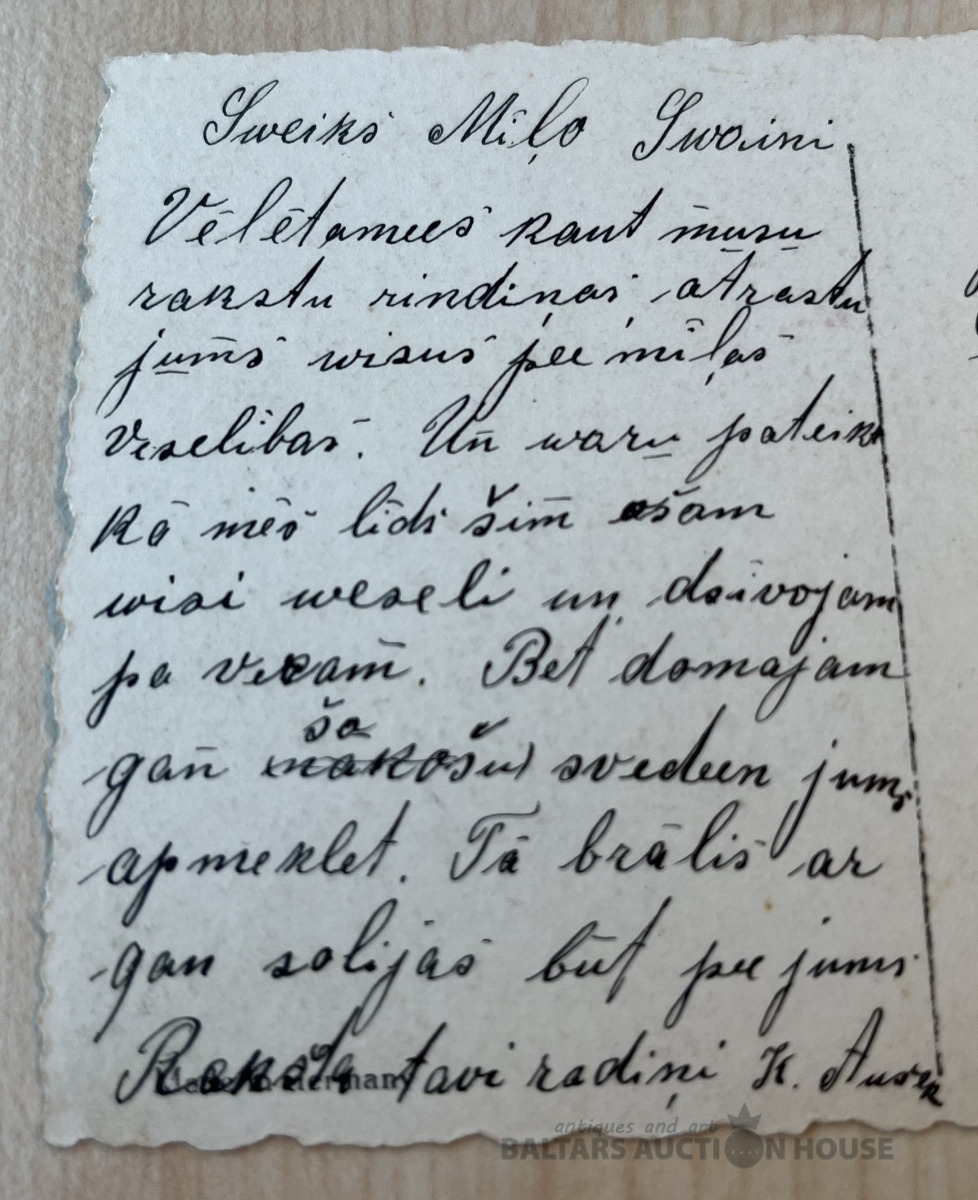 Sweiks Mīļo Swaini
Vēlētamees kaut mūsu
rakstu rindiņas ātrastu
jums wisus pee mīļas
veselibas. Un waru pateikt
Kā mēs līds šim ešam
wisi weseli un dsīvojam
pa vecam. Bet domajam
ša
gan nakošu svedeen jums
apmeklet. Tā brālis ar
gan solijas būt pee jums
Raksta tavi radiņi K.
Germany
antiques and art
BALTARS AUCTION HOUSE